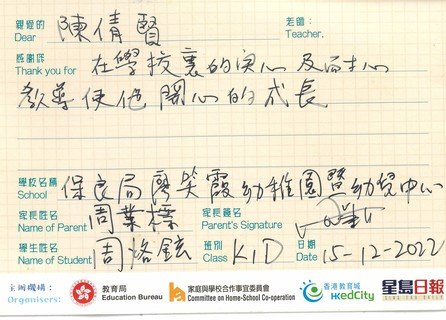 親愛的 陳倩賢 老師：
Dear Teacher,
感謝你
Thank you for 在學校裏的关心及
教導使他開心的成長
學校名稱
School 保良局廖笑霞幼稚園暨幼兒中心
家長姓名 周業樑 家長簽名
Name of Parent Parent's Signature
學生姓名 周洛鋐 班別 K1D 日期 15-12-2022
Name of Student Class Date
主辦機構：
Organisers:
教育局
Education Bureau
家庭與學校合作事宜委員會
Committee on Home-School Co-operation
香港教育城
HKedCity
星島日報
SING TAO DAILY